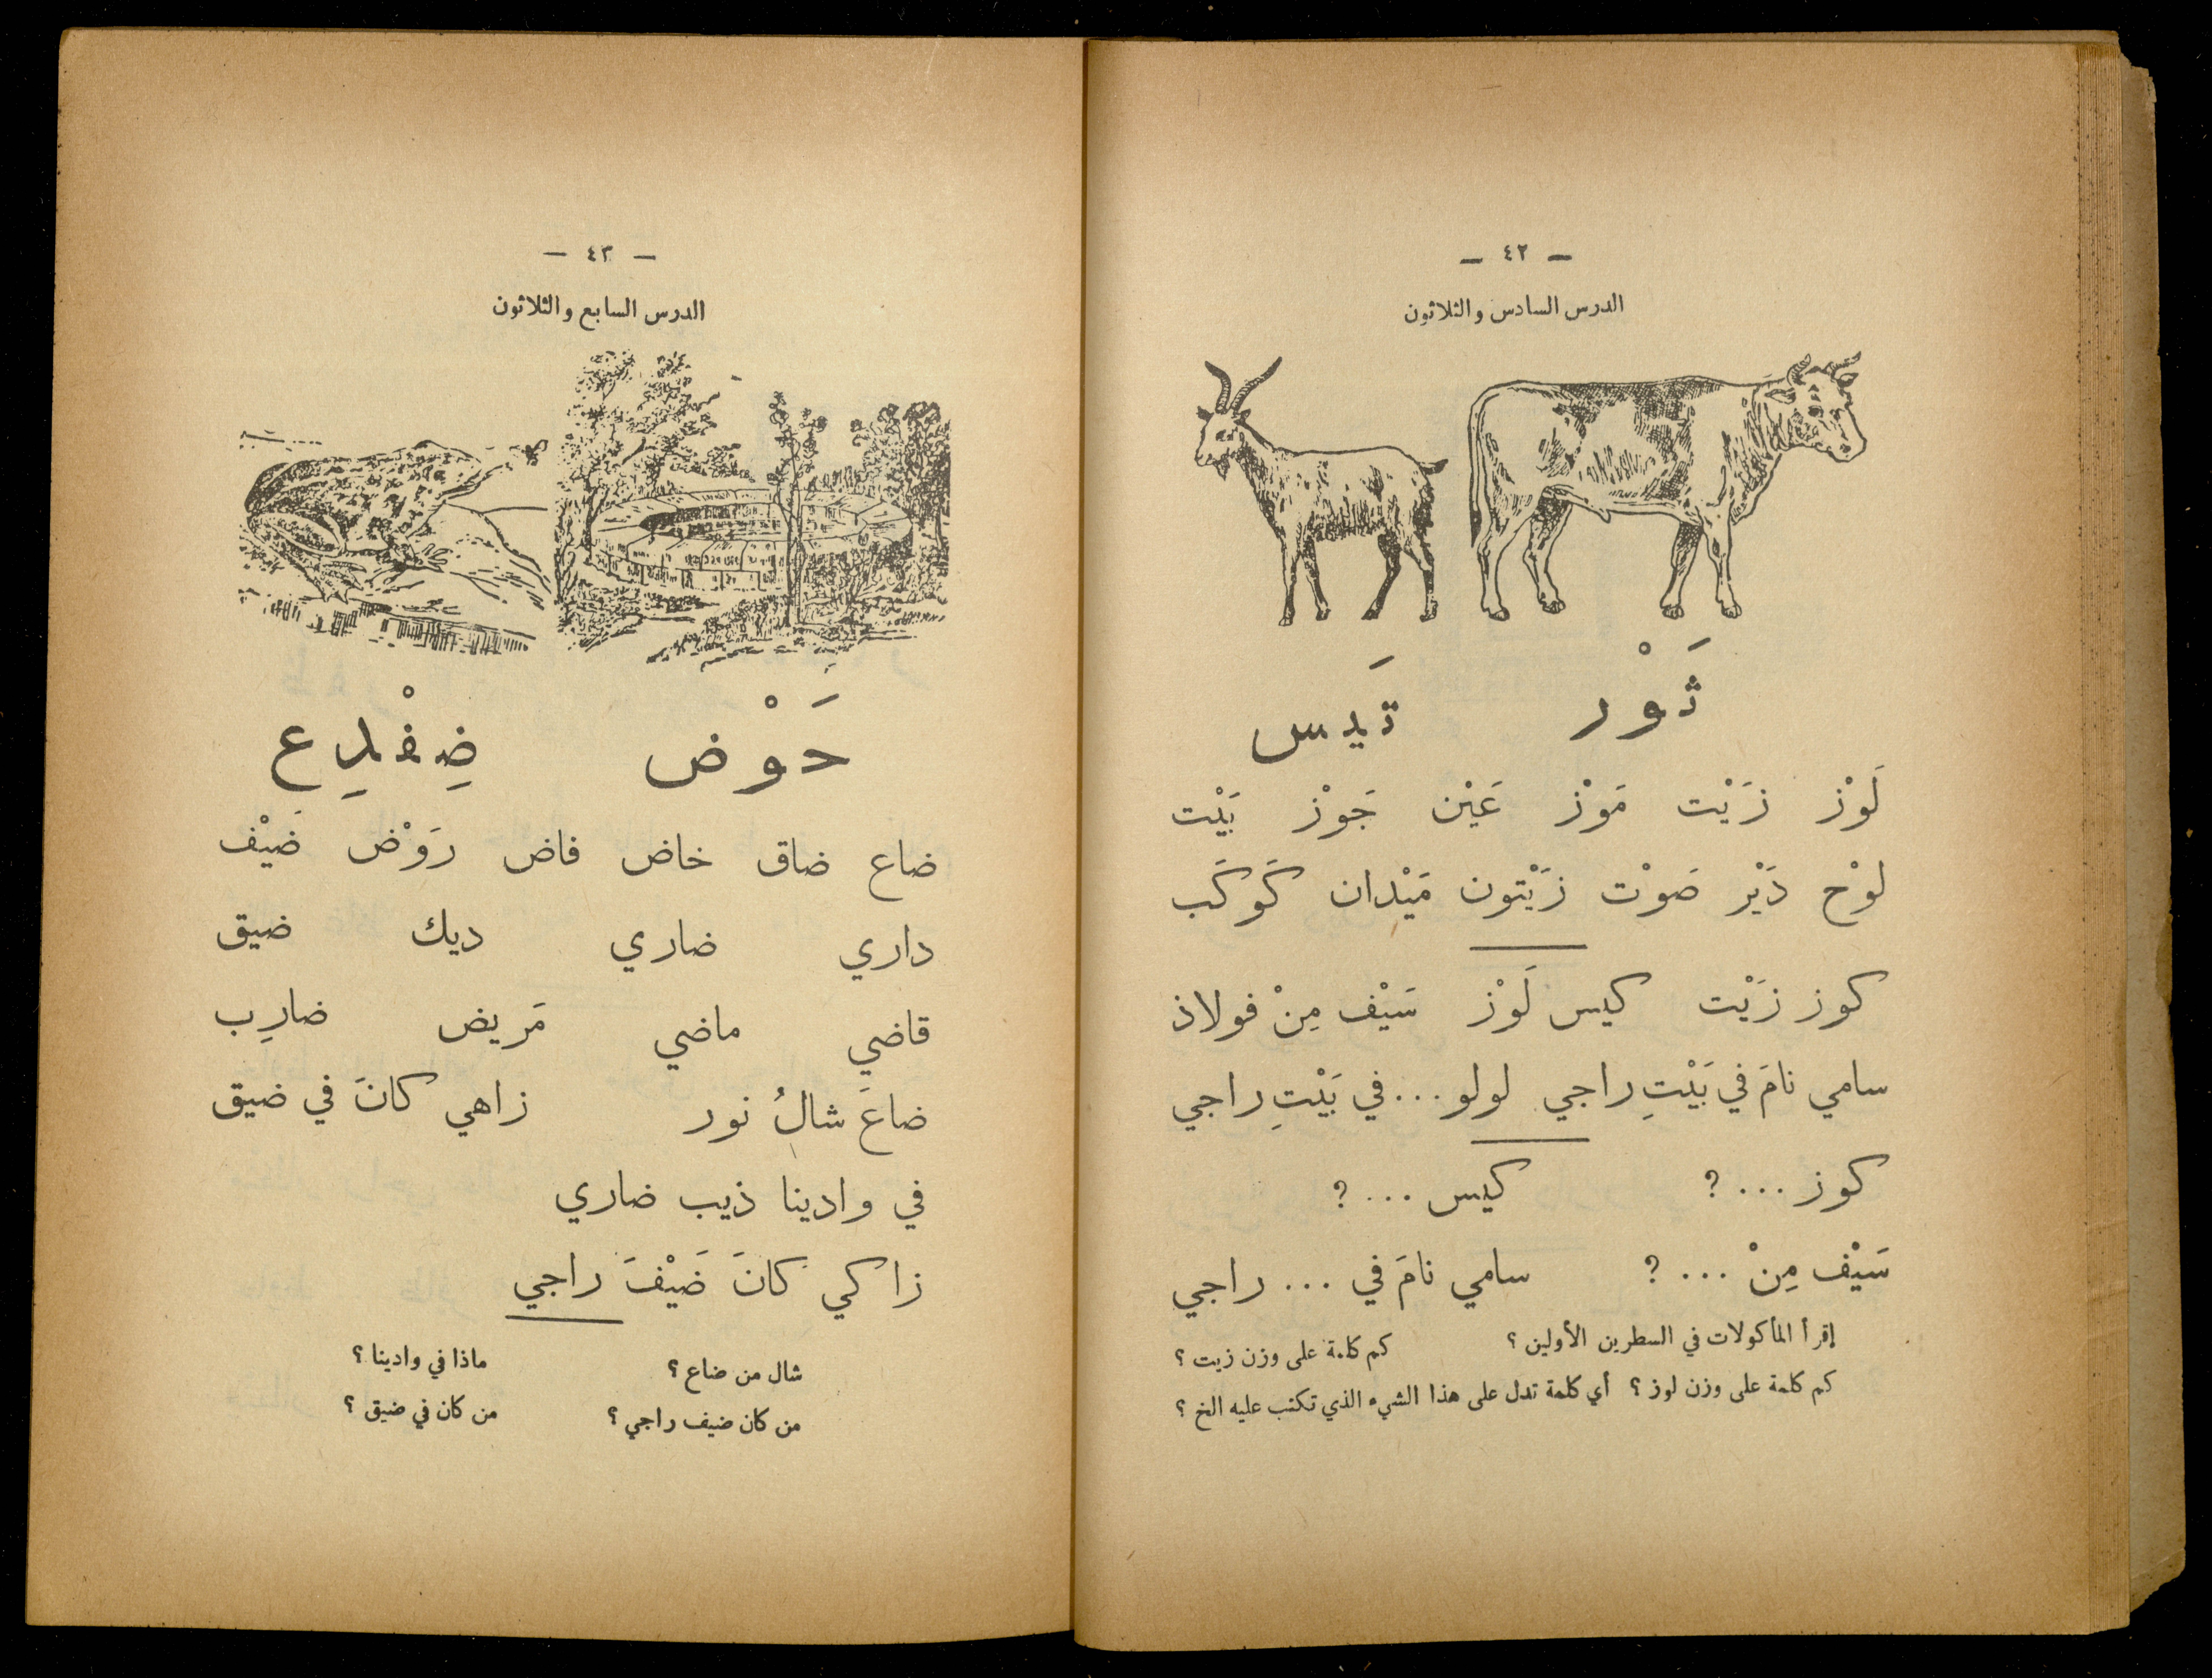 — ٤٢ —
الدرس السادس والثلاثون
ثَوْر تَيس
لَوْز زَيْت مَوْز عَيْن جَوْز بَيْت
لوْح دَيْر صَوْت زَيْتون مَيْدان كَوكَب
كوز زَيْت كيس لَوْز سَيْف مِنْ فولاذ
سامي نامَ في بَيْتِ راجي لولو ... في بَيْتِ راجي
كوز ... ? كيس ... ?
سَيْف مِنْ ... ? سامي نامَ في ... راجي
إقرأ المأكولات في السطرين الأولين ؟ كم كلمة على وزن زيت ؟
كم كلمة على وزن لوز ؟ أي كلمة تدل على هذا الشيء الذي تكتب عليه الخ ؟
— ٤٣ —
الدرس السابع والثلاثون
حَوْض ضِفْدِع
ضاع ضاق خاض فاض رَوْض ضَيْف
داري ضاري ديك ضيق
قاضي ماضي مَريض ضارِب
ضاعَ شالُ نور زاهي كانَ في ضيق
في وادينا ذيب ضاري
زاكي كانَ ضَيْفَ راجي
شال من ضاع ؟ ماذا في وادينا ؟
من كان ضيف راجي ؟ من كان في ضيق ؟